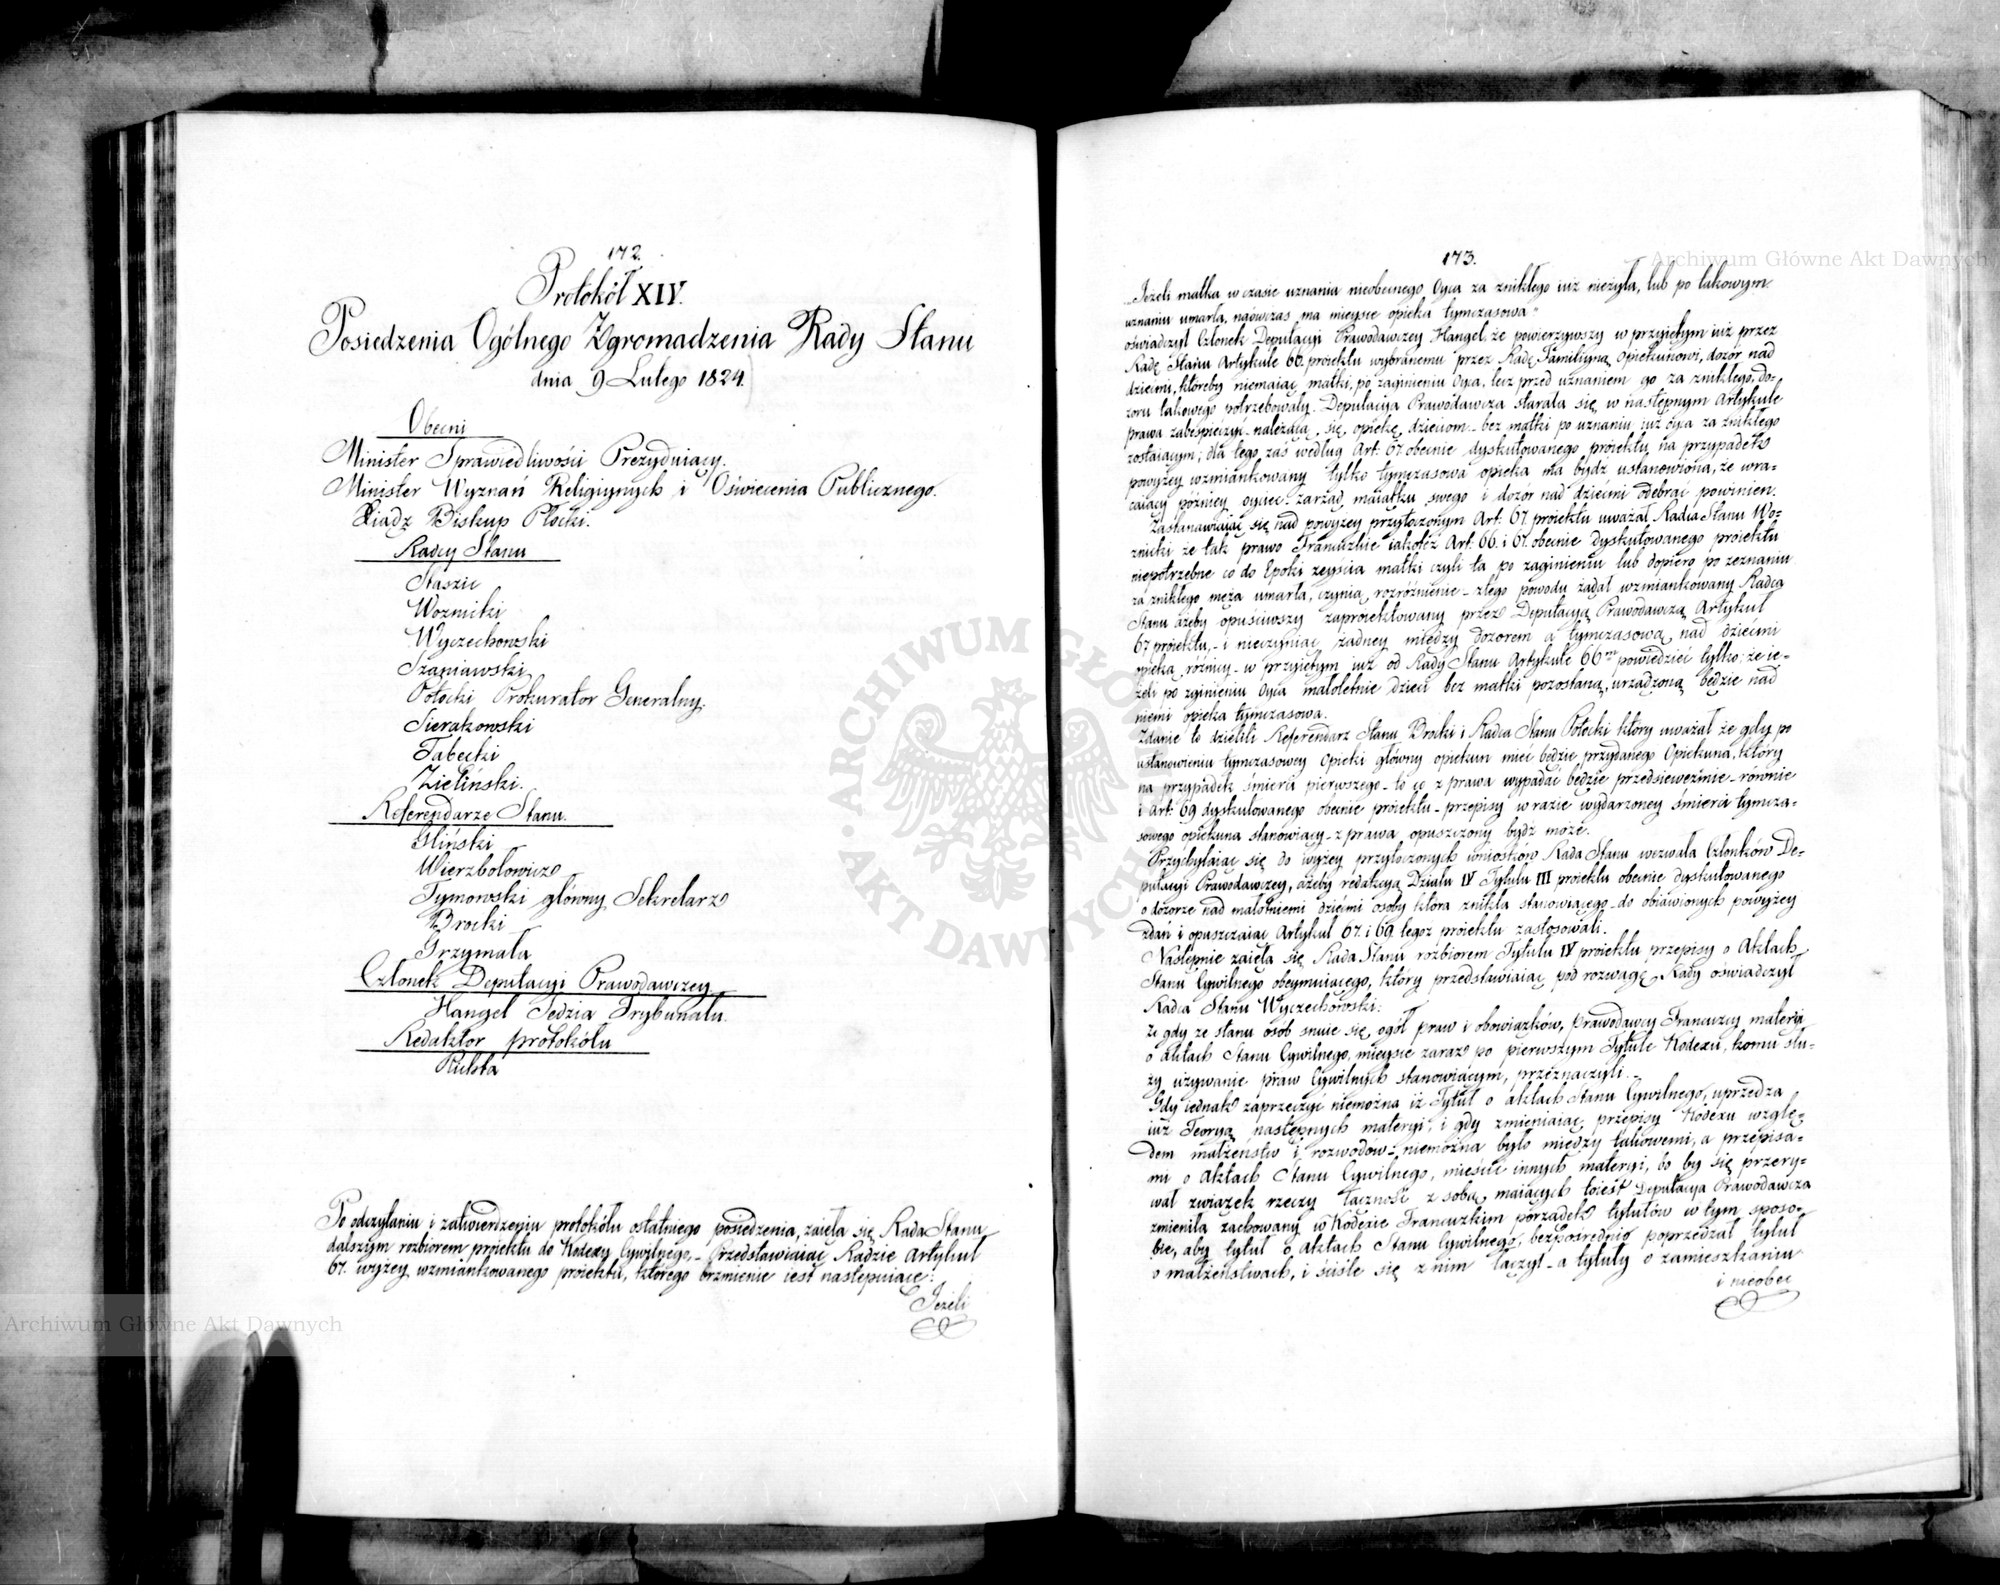 172.
Protokół XIV.
Posiedzenia Ogólnego Zgromadzenia Rady Stanu
dnia 9 Lutego 1824.
Obecni
Minister Sprawiedliwości Prezyduiący.
Minister Wyznań Religiynych i Oświecenia Publicznego.
Xiądz Biskup Płocki.
Radcy Stanu
Staszic
Woznicki
Wyczechowski
Szaniawski
Potocki Prokurator Generalny.
Sierakowski
Tabecki
Zieliński.
Referendarze Stanu.
Gliński
Wierzbołowicz
Tymowski główny Sekretarz
Brocki
Grzymała
Członek Deputacyi Prawodawczey.
Hangel Sędzia Trybunału.
Redaktor protokółu
Rukta
Po odczytaniu i zatwierdzeniu protokółu ostatniego posiedzenia, zaięła się Rada Stanu
dalszym rozbiorem proiektu do Kodexu Cywilnego, – Przedstawiaiąc Radzie Artykuł
67. wyżey wzmiankowanego proiektu, którego brzmienie iest następuiące:
Jeżeli
173.
„Jeżeli matka w czasie uznania nieobecnego Oyca za znikłego iuż nieżyła, lub po takowym
uznaniu umarła, naówczas ma mieysce opieka tymczasowa"
oświadczył Członek Deputacyi Prawodawczey Hangel, że powierzywszy w przyiętym iuż przez
Radę Stanu Artykule 66. proiektu wybranemu przez Radę Familiyną Opiekunowi, dozór nad
dziećmi, któreby niemaiąc matki, po zaginieniu Oyca, lecz przed uznaniem go za znikłego, do-
zoru takowego potrzebowały. Deputacya Prawodawcza starała się, w następnym Artykule
prawa zabespieczyć należącą się opiekę dzieciom – bez matki po uznaniu iuż oyca za znikłego
zostaiącym; dla tego zaś według Art: 67. obecnie dyskutowanego proiektu, na przypadek
powyżey wzmiankowany tylko tymczasowa opieka ma bydź ustanowiona, że wra-
caiący późniey oyciec zarząd maiątku swego i dozór nad dziećmi odebrać powinien.
Zastanawiaiąc się nad powyżey przytoczonym Art: 67. proiektu uważał Radca Stanu Wo-
znicki że tak prawo Francuzkie iakoteż Art: 66. i 67. obecnie dyskutowanego proiektu
niepotrzebne co do Epoki zeyścia matki czyli ta po zaginieniu lub dopiero po zeznaniu
za znikłego męża umarła, czynią rozróżnienie – z tego powodu żądał wzmiankowany Radca
Stanu ażeby opuściwszy zaproiektowany przez Deputacyą Prawodawczą Artykuł
67 proiektu, – i nieczyniąc żadney między dozorem a tymczasową nad dziećmi
opieką różnicy – w przyiętym iuż od Rady Stanu Artykule 66ym powiedzieć tylko; że ie-
żeli po zginieniu Oyca małoletnie dzieci bez matki pozostaną, urządzoną będzie nad
niemi opieka tymczasowa.
Zdanie to dzielili Referendarz Stanu Brocki i Radca Stanu Potocki który uważał że gdy po
ustanowieniu tymczasowey Opieki główny opiekun mieć będzie przydanego Opiekuna, który
na przypadek śmierci pierwszego – to co z prawa wypadać będzie przedsięweźmie – równie
i Art: 69 dyskutowanego obecnie proiektu – przepisy w razie wydarzoney śmierci tymcza-
sowego opiekuna stanowiący – z prawa opuszczony bydź może.
Przychylaiąc się do wyżey przytoczonych wniosków Rada Stanu wezwała Członków De-
putacyi Prawodawczey, ażeby redakcyą Działu IV Tytułu III proiektu obecnie dyskutowanego
o dozorze nad małotniemi dziećmi osoby która znikła stanowiącego – do obiawionych powyżey
zdań i opuszczaiąc Artykuł 67. i 69. tegoż proiektu zastosowali.
Następnie zaięła się Rada Stanu rozbiorem Tytułu IV proiektu przepisy o Aktach
Stanu Cywilnego obeymuiącego, który przedstawiaiąc pod rozwagę Rady oświadczył
Radca Stanu Wyczechowski:
że gdy ze stanu osób snuie się, ogół praw i obowiązków, prawodawcy Francuzcy materyi
o aktach Stanu Cywilnego, mieysce zaraz po pierwszym Tytule Kodexu, komu słu-
ży używanie praw Cywilnych stanowiącym, przeznaczyli. –
Gdy iednak zaprzeczyć niemożna iż Tytuł o aktach Stanu Cywilnego, uprzedza
iuż Teoryą następnych materyi, i gdy zmieniaiąc przepisy Kodexu wzglę-
dem małżeństw i rozwodów – niemożna było między takowemi, a przepisa-
mi o Aktach Stanu Cywilnego, mieścić innych materyi, bo by się przery-
wał związek rzeczy łączność z sobą maiących toiest Deputacya Prawodawcza
zmieniła zachowany w Kodexie Francuzkim porządek tytułów w tym sposo-
bie, aby tytuł o Aktach Stanu Cywilnego, bezpośrednio poprzedzał tytuł
o małżeństwach, i ściśle się z nim łączył – a tytuły o zamieszkaniu
i nieobec